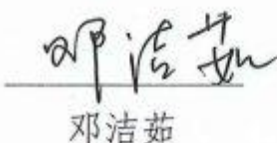 邓洁茹
邓洁茹